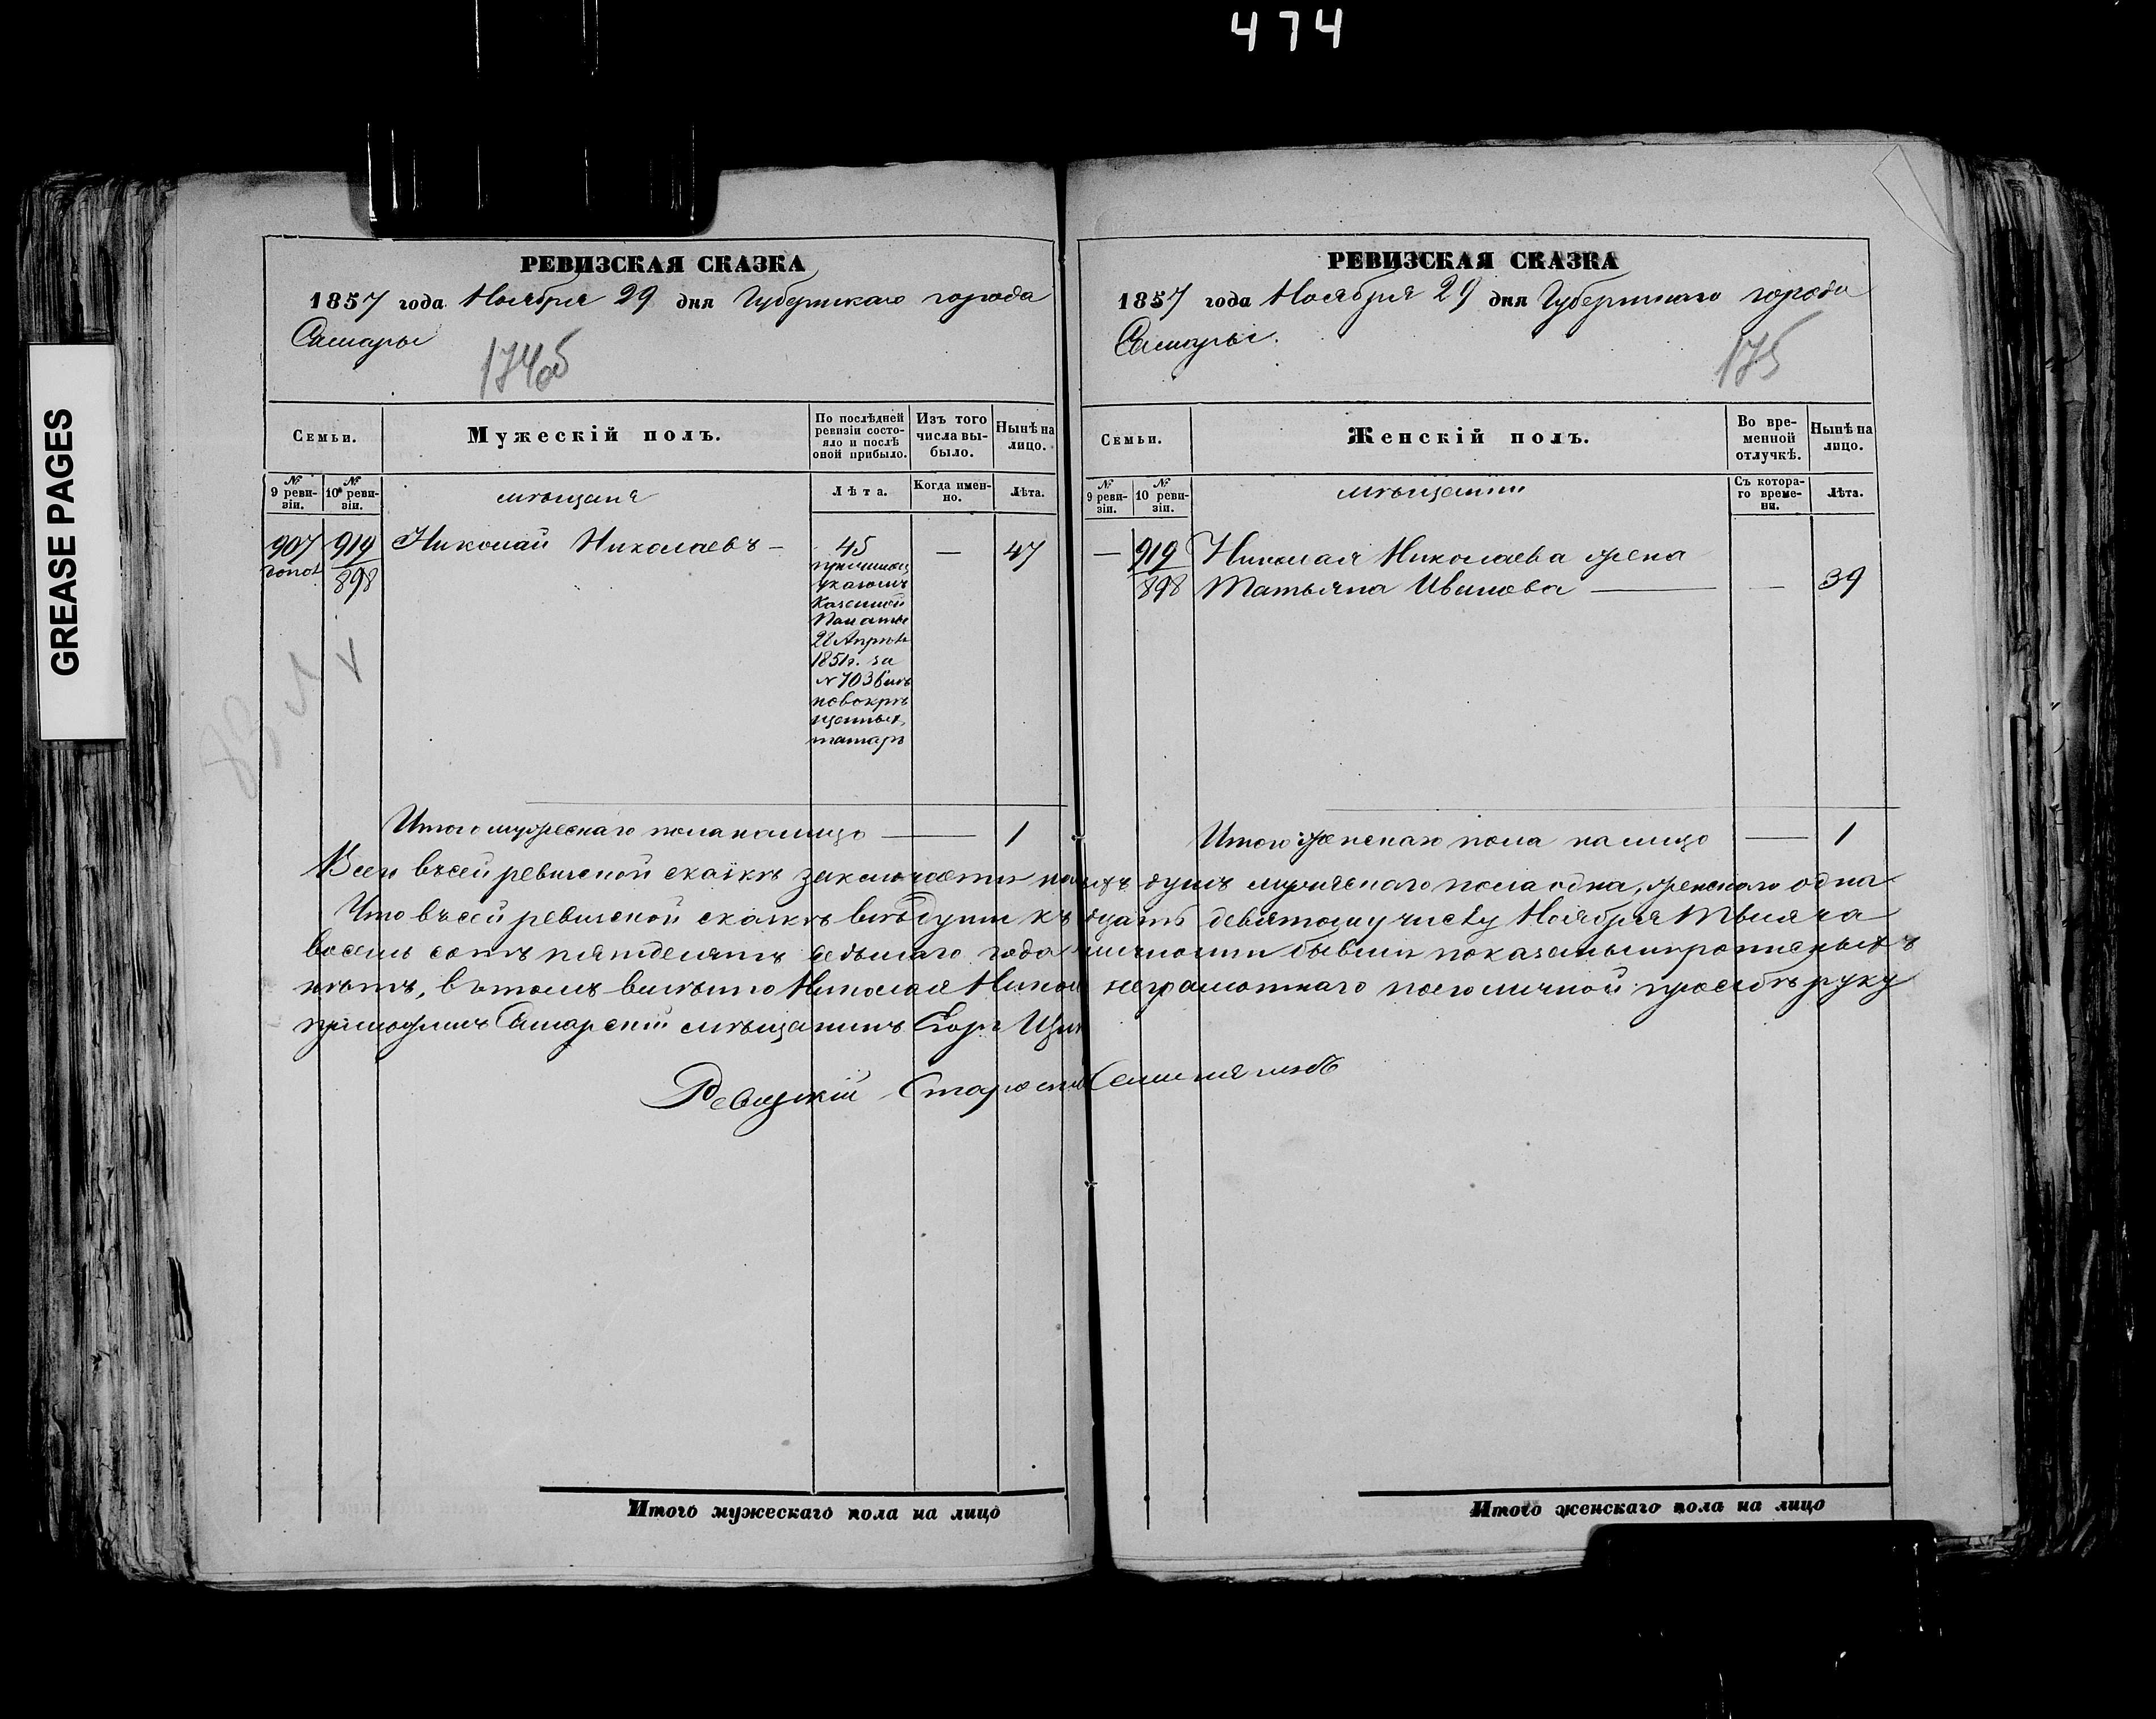 474
GREASE PAGES
РЕВИЗСКАЯ СКАЗКА
1857 года Ноября 29 дня Губернскаго города
Самары
174об
Семьи.
Мужескій полъ.
По послѣдней ревизіи состо-
яло и послѣ
оной прибыло.
Изъ того
числа вы-
было.
Нынѣ на
лицо.
№
9 реви-
зіи.
№
10й реви-
зіи.
мѣщаня
Лѣта.
Когда имен-
но.
Лѣта.
907
допол
919
898
Николай Николаевъ —
45
причислен
указомъ
Казенной
Палаты
22 Апрѣля
1851г. за
№ 703 изъ
новокрѣ
щенныхъ
татаръ
—
47
Итого мужескаго пола на лицо — 1
РЕВИЗСКАЯ СКАЗКА
1857 года Ноября 29 дня Губернскаго города
Самары.
175
Семьи.
Женскій полъ.
Во вре-
менной
отлучкѣ.
Нынѣ на
лицо.
№
9 реви-
зіи.
№
10 реви-
зіи.
мѣщанки
Съ котора-
го време-
ни.
Лѣта.
— 919 Николая Николаева жена
898 Татьяна Иванова — — 39
Итого женскаго пола на лицо — 1
Всего въ сей ревизской сказкѣ заключается на душъ мужескаго пола одна, женскаго одна
Что въ сей ревизской сказкѣ всѣ души къ дцать девятому числу Ноября Тысяча
восемь сотъ пятдесятъ седьмаго года личности бывши показаны и прописныхъ
нѣтъ, въ томъ вмѣсто Николая Никол неграмотнаго по его личной прозьбѣ руку
приложилъ Самарскій мѣщанинъ Егоръ
Ревизскій Староста
Итого мужескаго пола на лицо
Итого женскаго пола на лицо